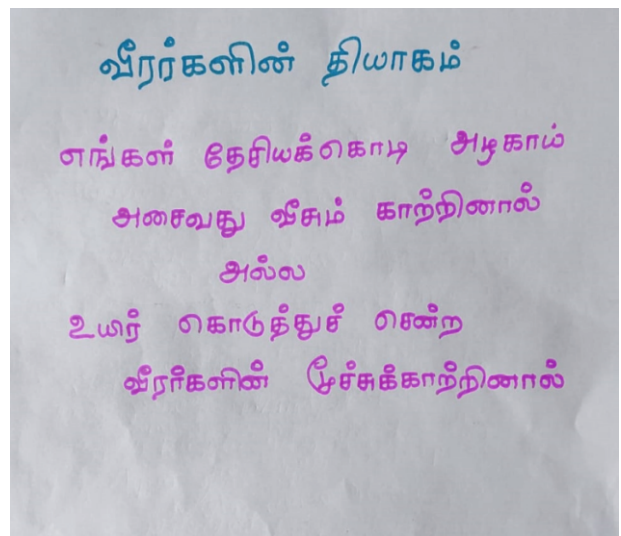 வீரர்களின் தியாகம்
எங்கள் தேசியக்கொடி அழகாய்
அசைவது வீசும் காற்றினால்
அல்ல
உயிர் கொடுத்துச் சென்ற
வீரர்களின் மூச்சுக்காற்றினால்